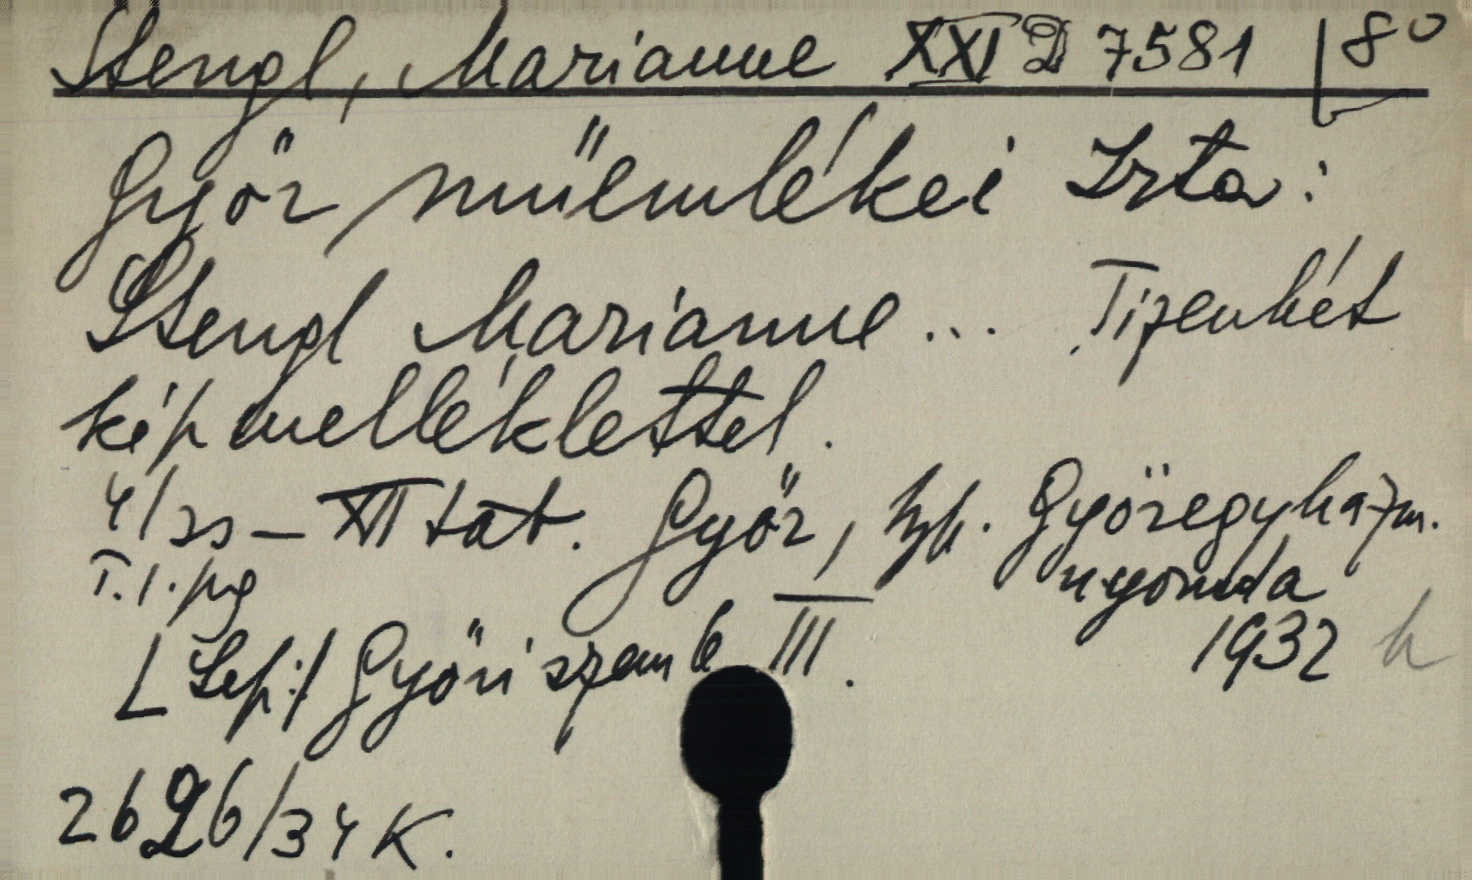 Stengl, Marianne XXI D 7581 | 8°
Győr műemlékei Irta:
Stengl Marianne... Tizenkét
kép melléklettel.
4/33 – XII táb. Győr, Győregyházm.
T.1.pg nyomda
Győri szemle III. 1932
2626/34 K.